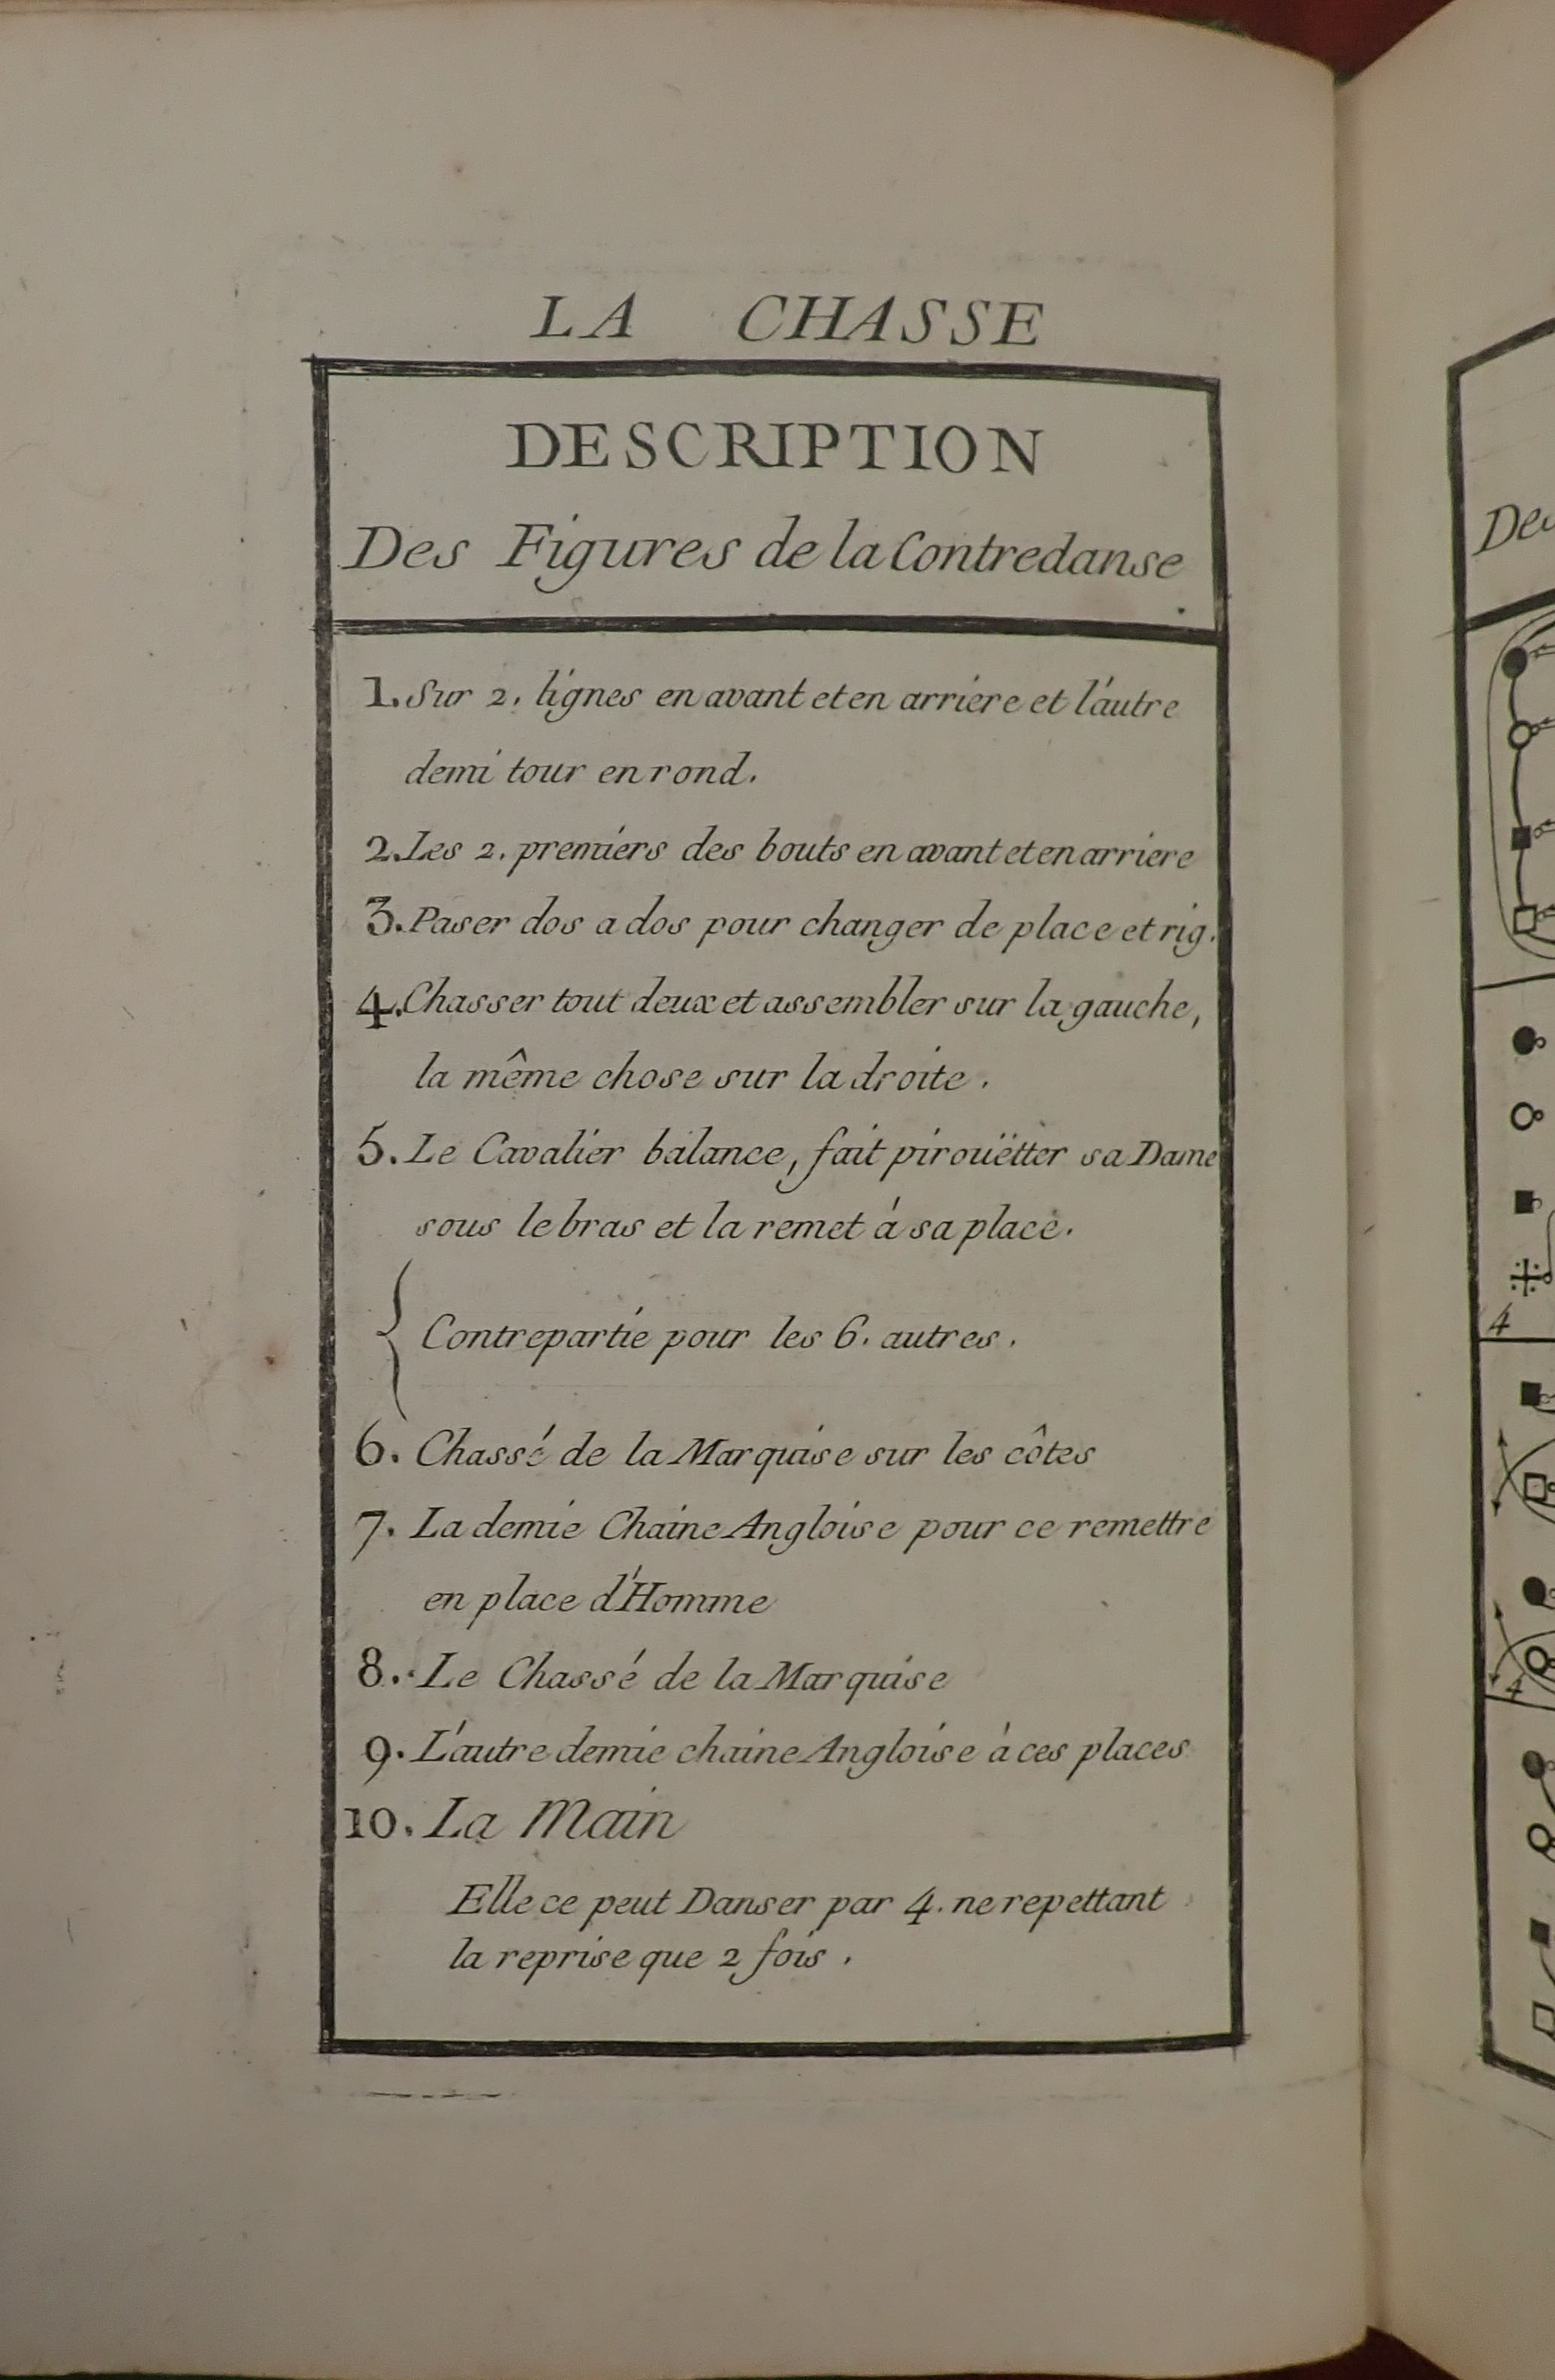 LA CHASSE
DESCRIPTION
Des Figures de la Contredanse
1. Sur 2. lignes en avant et en arriere et l'autre
demi tour en rond.
2. Les 2. premiers des bouts en avant et en arriere
3. Paser dos a dos pour changer de place et rig.
4. Chasser tout deux et assembler sur la gauche,
la même chose sur la droite.
5. Le Cavalier balance, fait pirouëtter sa Dame
sous le bras et la remet à sa place.
{ Contrepartie pour les 6. autres.
6. Chassé de la Marquise sur les côtes
7. La demie Chaine Angloise pour ce remettre
en place d'Homme
8. Le Chassé de la Marquise
9. L'autre demie chaine Angloise à ces places
10. La Main
Elle ce peut Danser par 4. ne repettant
la reprise que 2 fois.
4
4